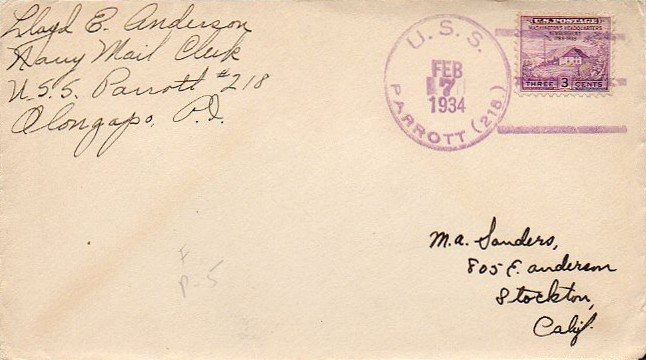 Lloyd E. Anderson
Navy Mail Clerk
U.S.S. Parrott #218
Olongapo, P.I.
U.S.S.
FEB
7
1934
PARROTT (218.)
U.S. POSTAGE
WASHINGTON'S HEADQUARTERS
NEWBURGH
1783-1933
THREE 3 CENTS
M.A. Sanders,
805 E. Anderson
Stockton,
Calif.
F
P-5